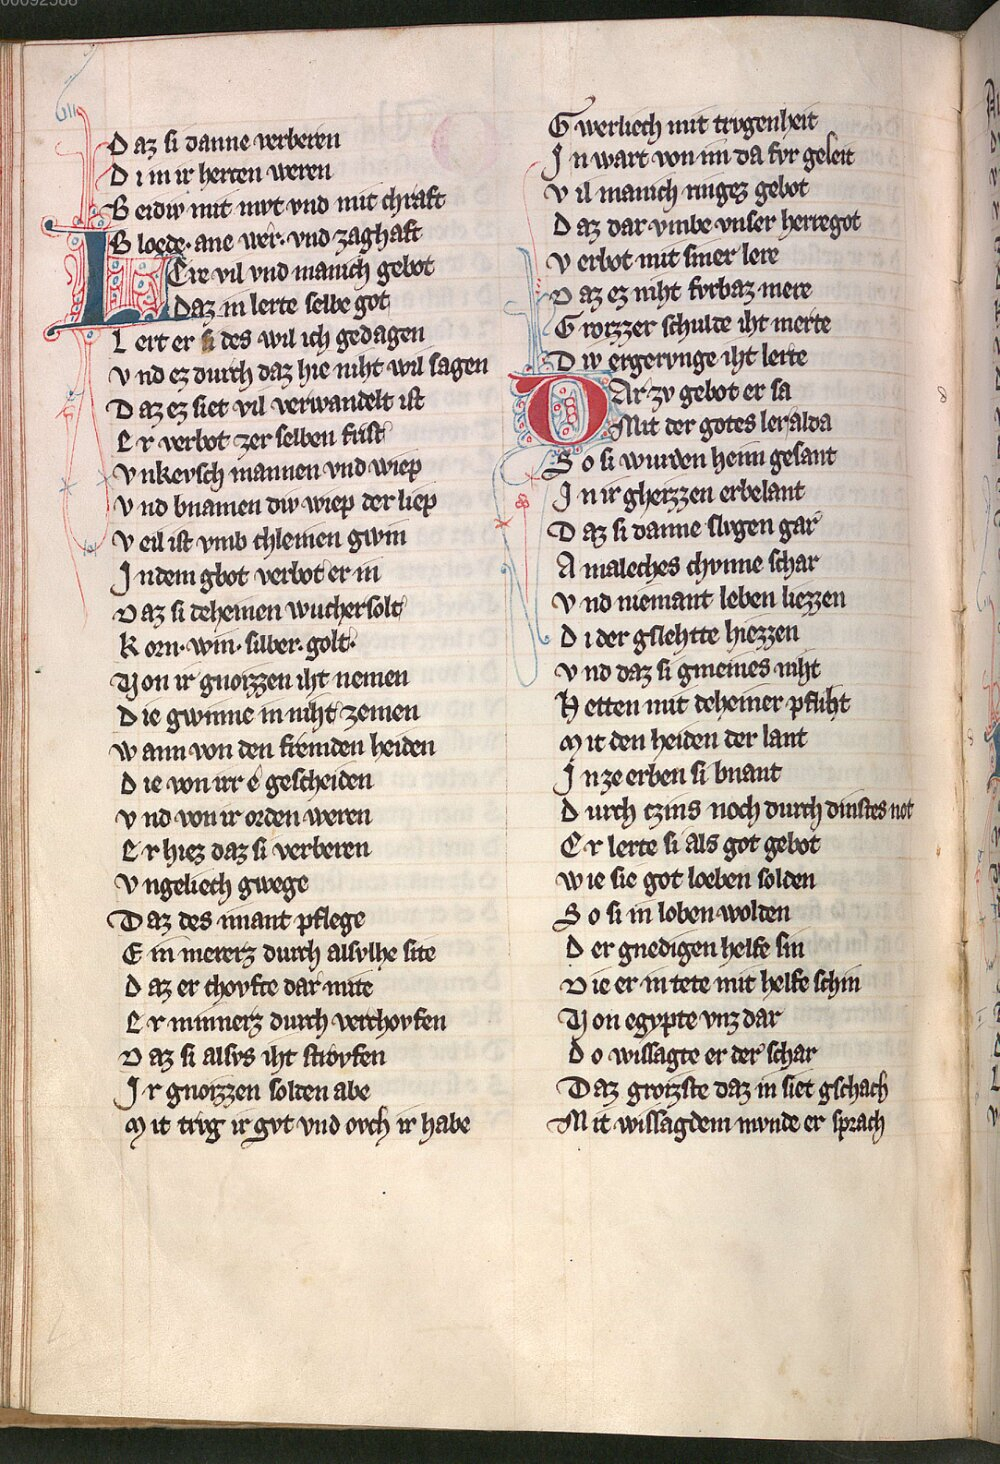 00092588
Daz si danne verberen
Di in ir herten weren
Beidiv mit mvt vnd mit chraft
Bloede· ane wer· vnd zaghaft
LEre vil vnd manich gebot
Daz in lerte selbe got
Lert er si des wil ich gedagen
Vnd ez durch daz hie niht wil sagen
Daz ez siet vil verwandelt ist
Er verbot zer selben frist
Vnkevsch mannen vnd wiep
Vnd bnamen div wiep der liep
Veil ist vmb chleinen gwin
Indem gbot verbot er in
Daz si deheinen wuchersolt
Korn· win· silber· golt·
Von ir gnoizzen iht nemen
Die gwinne in niht zemen
Wann von den fremden heiden
Die von irr e gescheiden
Vnd von ir orden weren
Er hiez daz si verberen
Vngeliech gwege
Daz des imant pflege
Ein mererz durch alsvlhe site
Daz er chovfte dar mite
Er minnerz durch verchovfen
Daz si alsvs iht strovfen
Ir gnoizzen solden abe
Mit trvg ir gvt vnd ovch ir habe
Gwerliech mit trvgenheit
In wart von im da fvr geleit
Vil manich ringez gebot
Daz dar vmbe vnser herregot
Verbot mit siner lere
Daz ez niht fvrbaz mere
Groizzer schulde iht merte
Div ergervnge iht lerte
DAr zv gebot er sa
Mit der gotes ler alda
So si wurden heim gesant
In ir gheizzen erbelant
Daz si danne slvgen gar
Amaleches chvnne schar
Vnd niemant leben liezzen
Di der gslehtte hiezzen
Vnd daz si gmeines niht
Hetten mit deheiner pfliht
Mit den heiden der lant
In ze erben si bnant
Durch czins noch durch dinstes not
Er lerte si als got gebot
Wie sie got loeben solden
So si in loben wolden
Der gnedigen helfe sin
Die er in tete mit helfe schin
Von egypte vnz dar
Do wissagte er der schar
Daz groizste daz in siet gschach
Mit wissagdem mvnde er sprach